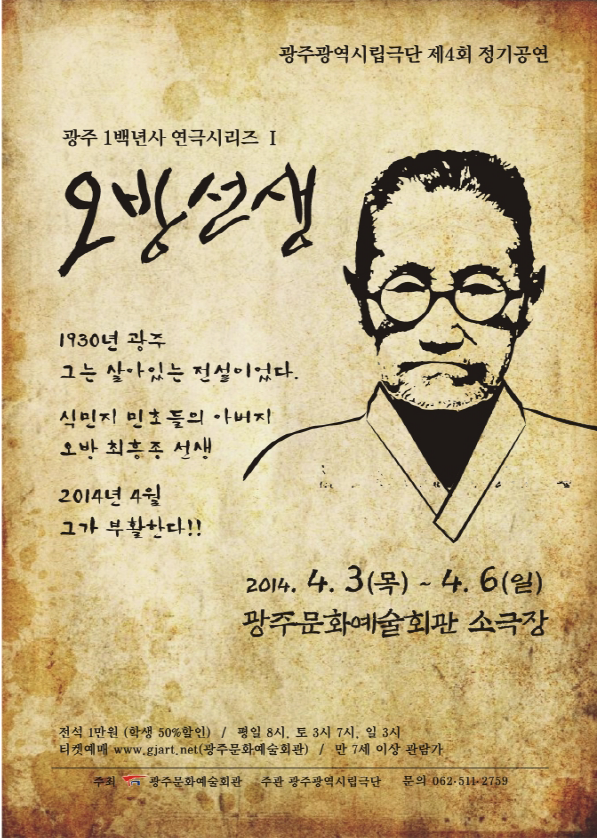 광주광역시립극단 제4회 정기공연
광주 1백년사 연극시리즈 Ⅰ
오방선생
1930년 광주
그는 살아있는 전설이었다.
식민지 민초들의 아버지
오방 최흥종 선생
2014년 4월
그가 부활한다!!
2014. 4. 3(목) ~ 4. 6(일)
광주문화예술회관 소극장
전석 1만원 (학생 50%할인) / 평일 8시, 토 3시 7시, 일 3시
티켓예매 www.gjart.net(광주문화예술회관) / 만 7세 이상 관람가
주최 광주문화예술회관 주관 광주광역시립극단 문의 062·511·2759